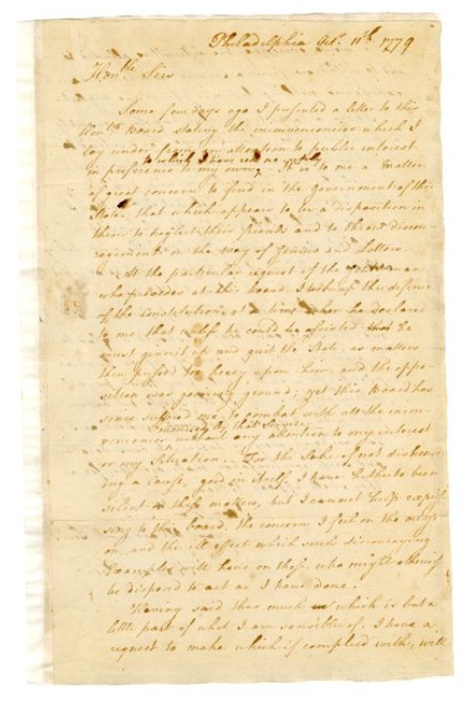 Philadelphia Octr. 11th. 1779
Honble. Sirs
Some few days ago I presented a letter to this
Honble. Board stating the inconveniencies which I
lay under from an attention to public interest
to which I have recd. no reply
in preference to my own. It is to me a matter
of great concern to find in the government of this
State, that which appears to be a disposition in
them to neglect their friends and to throw discou-
ragements in the way of Genius and Letters.
At the particular request of the Gentleman
who presides at this board, I took up the defence
of the Constitution, at a time when he declared
to me that unless he could be assisted he
must give it up and quit the State, as matters
then pressed too heavy upon him, and the oppo-
sition was gaining ground; yet this Board has
since suffered me, to combat with all the incon-
incurred by that Service
veniences without any attention to my interest
or my Situation. For the sake of not dishonor-
ing a Cause, good in itself, I have hitherto been
silent on these matters, but I cannot help expres-
sing to this board, the concern I feel on the occasi-
on, and the ill effect which such discouraging
Examples will have on those, who might otherwise
be disposed to act as I have done.
Having said thus much which is but a
little part of what I am sensible of. I have a
request to make which if complied with, will